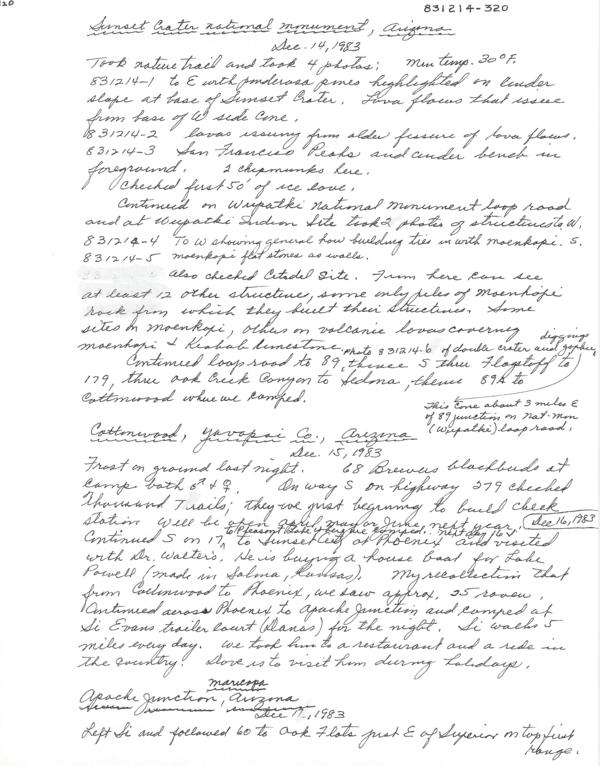 831214-320
Sunset Crater National Monument, Arizona
Dec. 14, 1983
Took nature trail and took 4 photos; Min temp. 30°F.
831214-1 to E with ponderosa pines highlighted on cinder
slope at base of Sunset Crater. Lava flows that issue
from base of W side Cone.
831214-2 lavas issuing from older fissure of lava flows.
831214-3 San Francisco Peaks and cinder bench in
foreground. 2 chipmunks here.
Checked first 50' of ice cave.
Continued on Wupatki National Monument loop road
and at Wupatki Indian Site took 2 photos of structures to W.
831214-4 To W showing general how building ties in with moenkopi. S.
831214-5 moenkopi flat stones as walls.
Also checked Citadel Site. From here can see
at least 12 other structures, some only piles of Moenkopi
rock from which they built their structures. Some
sites on moenkopi, others on volcanic lavas covering
moenkopi & Kiabab limestone. Photo 831214-6 of double crater and gopher diggings
Continued loop road to 89, thence S thru Flagstaff to
179, thru Oak Creek Canyon to Sedona, thence 89A to
Cottonwood where we camped.
This cone about 3 miles E
of 89 junction on Nat. Mon
(Wupatki) loop road.
Cottonwood, Yavapai Co., Arizona
Dec. 15, 1983
Frost on ground last night. 68 Brewers blackbirds at
camp both ♂ & ♀. On way S on highway 279 checked
Thousand Trails; they've just beginning to build check
station will be open April, May or June, next year.
to Pleasant Lake camped. Next day 16th
Dec 16, 1983
Continued S on 17, to Sunset at Phoenix and visited
with Dr. Walter's. He is buying a house boat for Lake
Powell (made in Salina, Kansas). My recollection that
from Cottonwood to Phoenix, we saw approx. 25 raven.
Continued across Phoenix to Apache Junction and camped at
Si Evans trailer court (Danas) for the night. Si walks 5
miles every day. We took him to a restaurant and a ride in
the country. Dove is to visit him during holidays.
Maricopa
Apache Junction, Arizona
Dec 17, 1983
Left Si and followed 60 to Oak Flats just E of Superior on top first
range.